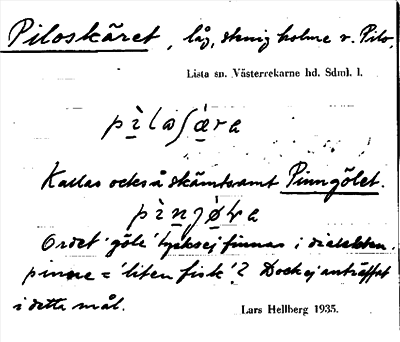 Piloskäret, låg, stenig holme v. Pilo.
Lista sn. Västerrekarne hd. Sdml. l.
pìlaʃæ̀ra
Kallas också skämtsamt Pinngölet.
Ordet 'göle' tycks ej finnas i dialekten.
pinne = 'liten fisk'? Dock ej anträffat
i detta mål.
Lars Hellberg 1935.